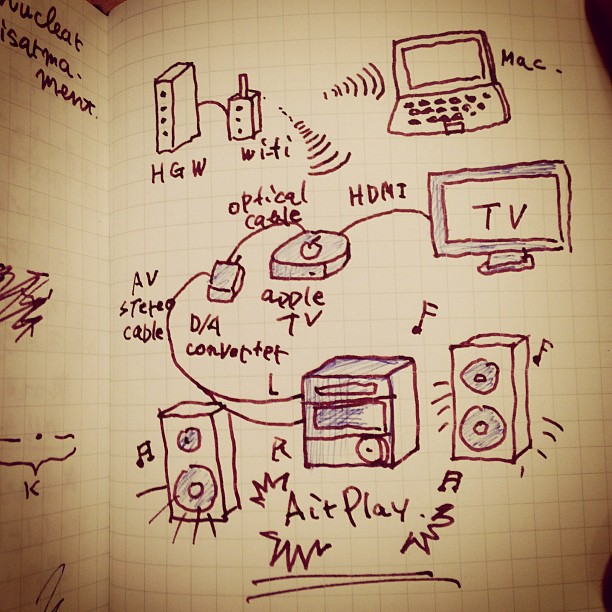 nuclear
isarma-
ment.
Mac.
HGW
wifi
optical
cable
HDMI
TV
apple
TV
AV
stereo
cable
D/A
converter
L
R
AirPlay.
K